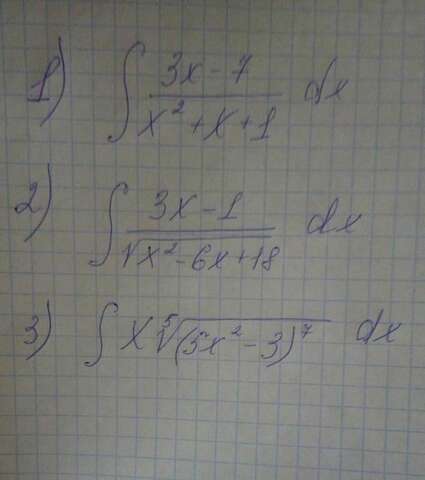 1) ∫ (3x-7)/(x²+x+1) dx
2) ∫ (3x-1)/√(x²-6x+18) dx
3) ∫ x ⁵√((5x²-3)⁷) dx